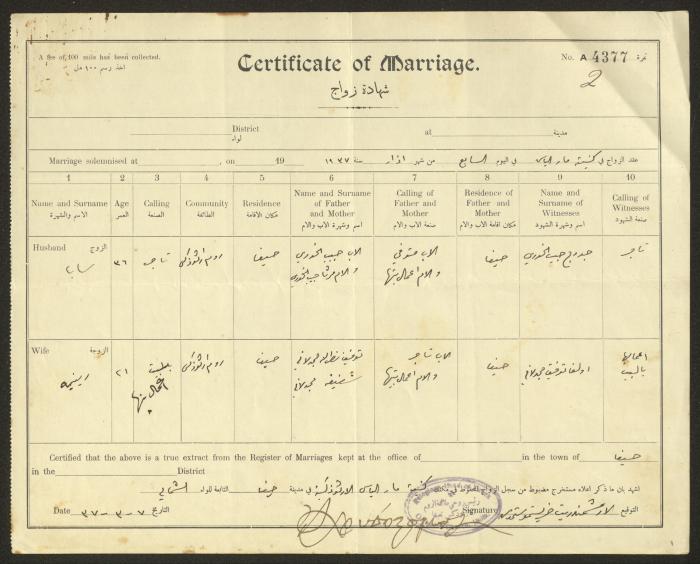 A fee of 100 mils has been collected.
اخذ رسم ١٠٠ مل
Certificate of Marriage.
No. A 4377 نمرة
2
شهادة زواج
District
لواء
at مدينة
Marriage solemnised at , on 19
عقد الزواج في كنيسة مار الياس في اليوم السابع من شهر اذار سنة ١٩٣٧
1 2 3 4 5 6 7 8 9 10
Name and Surname
الاسم والشهرة
Age
العمر
Calling
الصنعة
Community
الطائفة
Residence
مكان الاقامة
Name and Surname of Father and Mother
اسم وشهرة الاب والام
Calling of Father and Mother
صنعة الاب والام
Residence of Father and Mother
مكان اقامة الاب والام
Name and Surname of Witnesses
اسم وشهرة الشهود
Calling of Witnesses
صنعة الشهود
Husband الزوج
سابا
٣٦
تاجر
روم ارثوذكس
حيفا
الاب حبيب الخوري
الاب متوفي
والام اعمال بيتها
حيفا
حبيب الخوري
تاجر
Wife الزوجة
٢١
اعمال بيتها
روم ارثوذكس
حيفا
توفيق مجدلاني
مجدلاني
الاب تاجر
والام اعمال بيتها
حيفا
اولغا توفيق مجدلاني
اعمالها
بالبيت
Certified that the above is a true extract from the Register of Marriages kept at the office of in the town of حيفا
in the District
اشهد بان ما ذكر اعلاه مستخرج مضبوط من سجل الزواج المحفوظ في مكتب كنيسة مار الياس الارثوذكسية في مدينة حيفا التابعة للواء الشمالي
Date ٧-٣-٣٧ التاريخ
Signature التوقيع